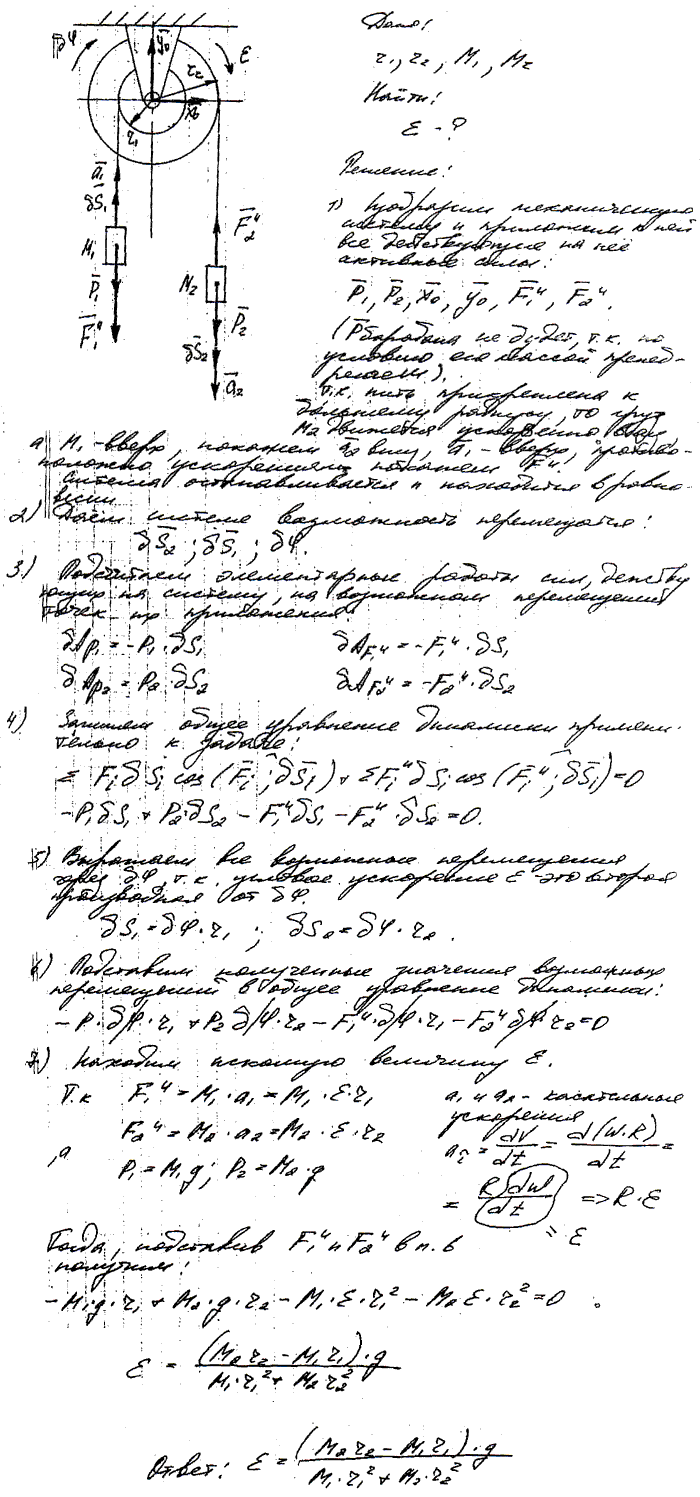 δφ
y̅₀
ε
r₂
x̅₀
r₁
a̅₁
δS̅₁
M₁
P̅₁
F̅₁ᵘ
F̅₂ᵘ
M₂
P̅₂
δS̅₂
a̅₂
Дано:
r₁, r₂, M₁, M₂
Найти:
ε - ?
Решение:
1) Изобразим механическую
систему и приложим к ней
все действующие на неё
активные силы:
P̅₁, P̅₂, x̅₀, y̅₀, F̅₁ᵘ, F̅₂ᵘ.
(P̅барабана не будет, т.к. по
условию его массой пренеб-
регаем).
т.к. нить прикреплена к
большему радиусу, то груз
M₂ движется ускоренно вниз
а M₁ - вверх, покажем a̅₂ вниз, a̅₁ - вверх, противо-
положно ускорениям покажем F̅ᵘ,
система останавливается и находится в равно-
весии
2) Даём системе возможность перемещатся:
δS̅₂ ; δS̅₁ ; δφ.
3) Подсчитаем элементарные работы сил, действу
ющих на систему, на возможном перемещении
точек их приложения:
δA_P₁ = -P₁·δS₁ δA_F₁ᵘ = -F₁ᵘ·δS₁
δA_P₂ = P₂·δS₂ δA_F₂ᵘ = -F₂ᵘ·δS₂
4) Запишем общее уравнение динамики примени-
тельно к задаче:
Σ Fᵢ δSᵢ cos(F̅ᵢ;^δS̅ᵢ) + ΣFᵢᵘ δSᵢ cos(F̅ᵢᵘ;^δS̅ᵢ) = 0
-P₁δS₁ + P₂·δS₂ - F₁ᵘδS₁ - F₂ᵘ·δS₂ = 0.
5) Выражаем все возможные перемещения
через δφ т.к. угловое ускорение ε это вторая
производная от δφ.
δS₁ = δφ·r₁ ; δS₂ = δφ·r₂.
6) Подставим полученные значения возможных
перемещений в общее уравнение динамики:
-P·δφ·r₁ + P₂δφ·r₂ - F₁ᵘ·δφ·r₁ - F₂ᵘδφ·r₂ = 0
7) Находим искомую величину ε.
Т.к F₁ᵘ = M₁·a₁ = M₁·ε·r₁ a₁ и a₂ - касательные
ускорения
F₂ᵘ = M₂·a₂ = M₂·ε·r₂ a_τ = dV/dt = d(W·R)/dt =
, а P₁ = M₁g ; P₂ = M₂·g
= R dW/dt => R·ε
= ε
Тогда, подставив F₁ᵘ и F₂ᵘ в п. 6
получим:
-M₁g·r₁ + M₂·g·r₂ - M₁·ε·r₁² - M₂ε·r₂² = 0.
ε = (M₂r₂ - M₁r₁)·g / M₁·r₁² + M₂r₂²
Ответ: ε = (M₂r₂ - M₁r₁)·g / M₁·r₁² + M₂·r₂²